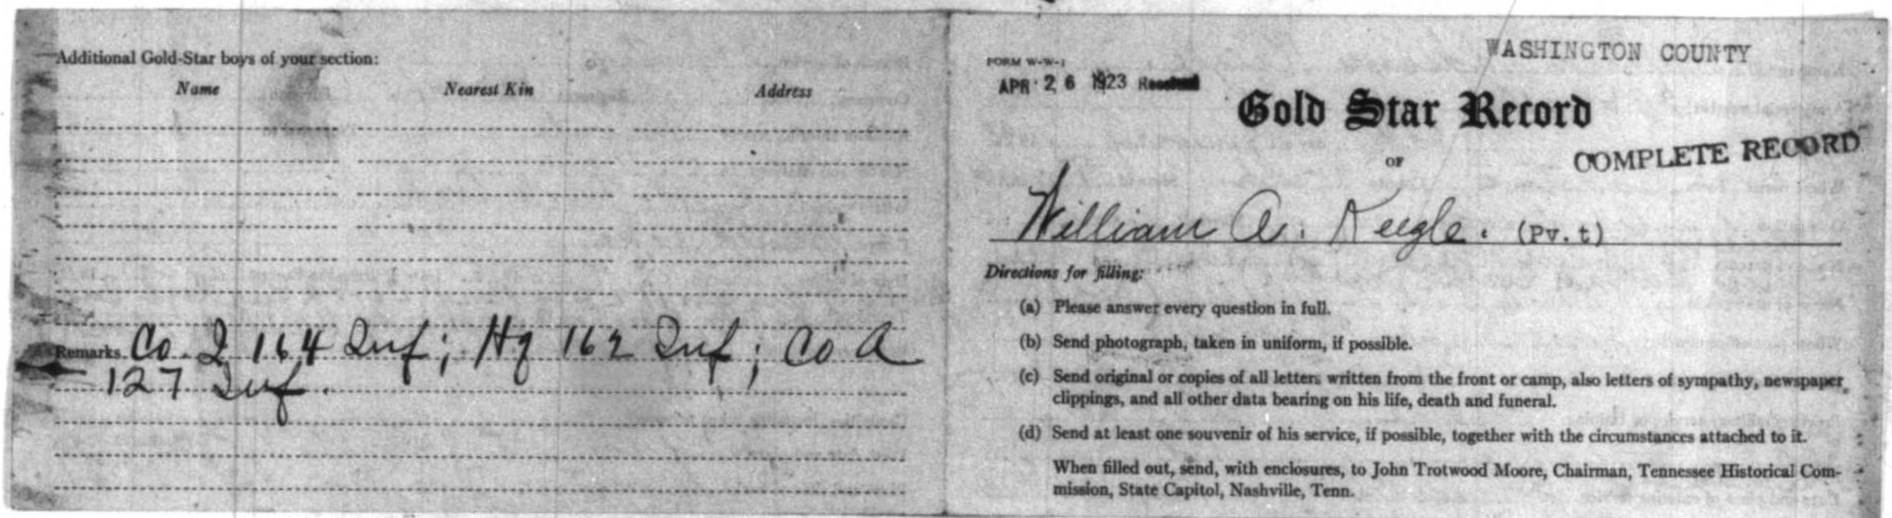 Additional Gold-Star boys of your section:
Name Nearest Kin Address
Remarks Co. I 164 Inf; Hq 162 Inf; Co A
127 Inf.
WASHINGTON COUNTY
FORM W-W-1
APR 26 1923 Received
Gold Star Record
OF
COMPLETE RECORD
William A. Keegle. (Pv.t)
Directions for filling:
(a) Please answer every question in full.
(b) Send photograph, taken in uniform, if possible.
(c) Send original or copies of all letters written from the front or camp, also letters of sympathy, newspaper
clippings, and all other data bearing on his life, death and funeral.
(d) Send at least one souvenir of his service, if possible, together with the circumstances attached to it.
When filled out, send, with enclosures, to John Trotwood Moore, Chairman, Tennessee Historical Com-
mission, State Capitol, Nashville, Tenn.